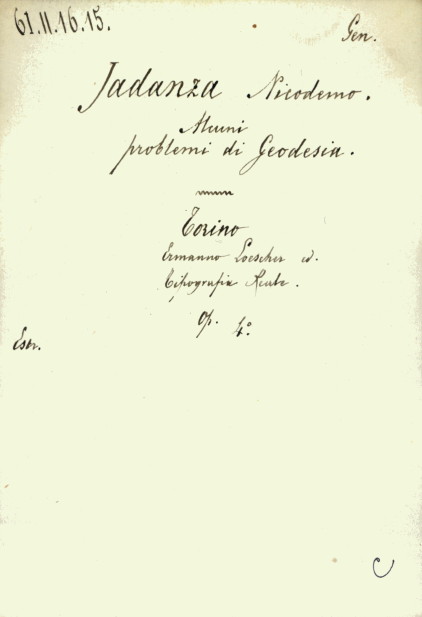 61.II.16.15.
Gen.
Jadanza Nicodemo.
Alcuni
problemi di Geodesia.
Torino
Ermanno Loescher ed.
Tipografia Reale.
op. 4°
Estr.
C